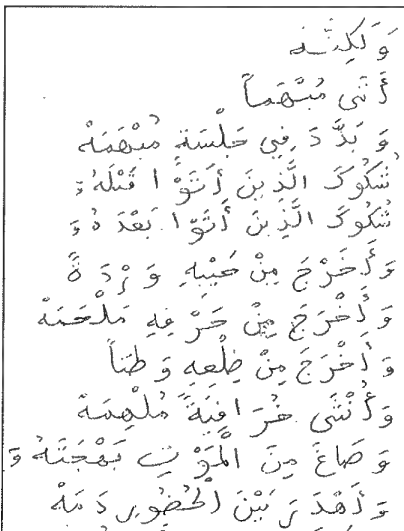 وَلَكِنَّهُ
أَتَى مُبْهَماً
وَبَدَّدَ فِي جَلْسَةٍ مُبْهَمَهْ
شُكُوكَ الَّذِينَ أَتَوْا قَبْلَهُ،
شُكُوكَ الَّذِينَ أَتَوْا بَعْدَهُ،
وَأَخْرَجَ مِنْ جَيْبِهِ وَرْدَةً
وَأَخْرَجَ مِنْ حَرْفِهِ مَلْحَمَهْ
وَأَخْرَجَ مِنْ ضِلْعِهِ وَطَناً
وَأُنْثَى خُرَافِيَّةً مُلْهِمَهْ
وَصَاغَ مِنَ الْمَوْتِ بَهْجَتَهُ وَ
وَأَهْدَرَ بَيْنَ الْحُضُورِ دَمَهْ